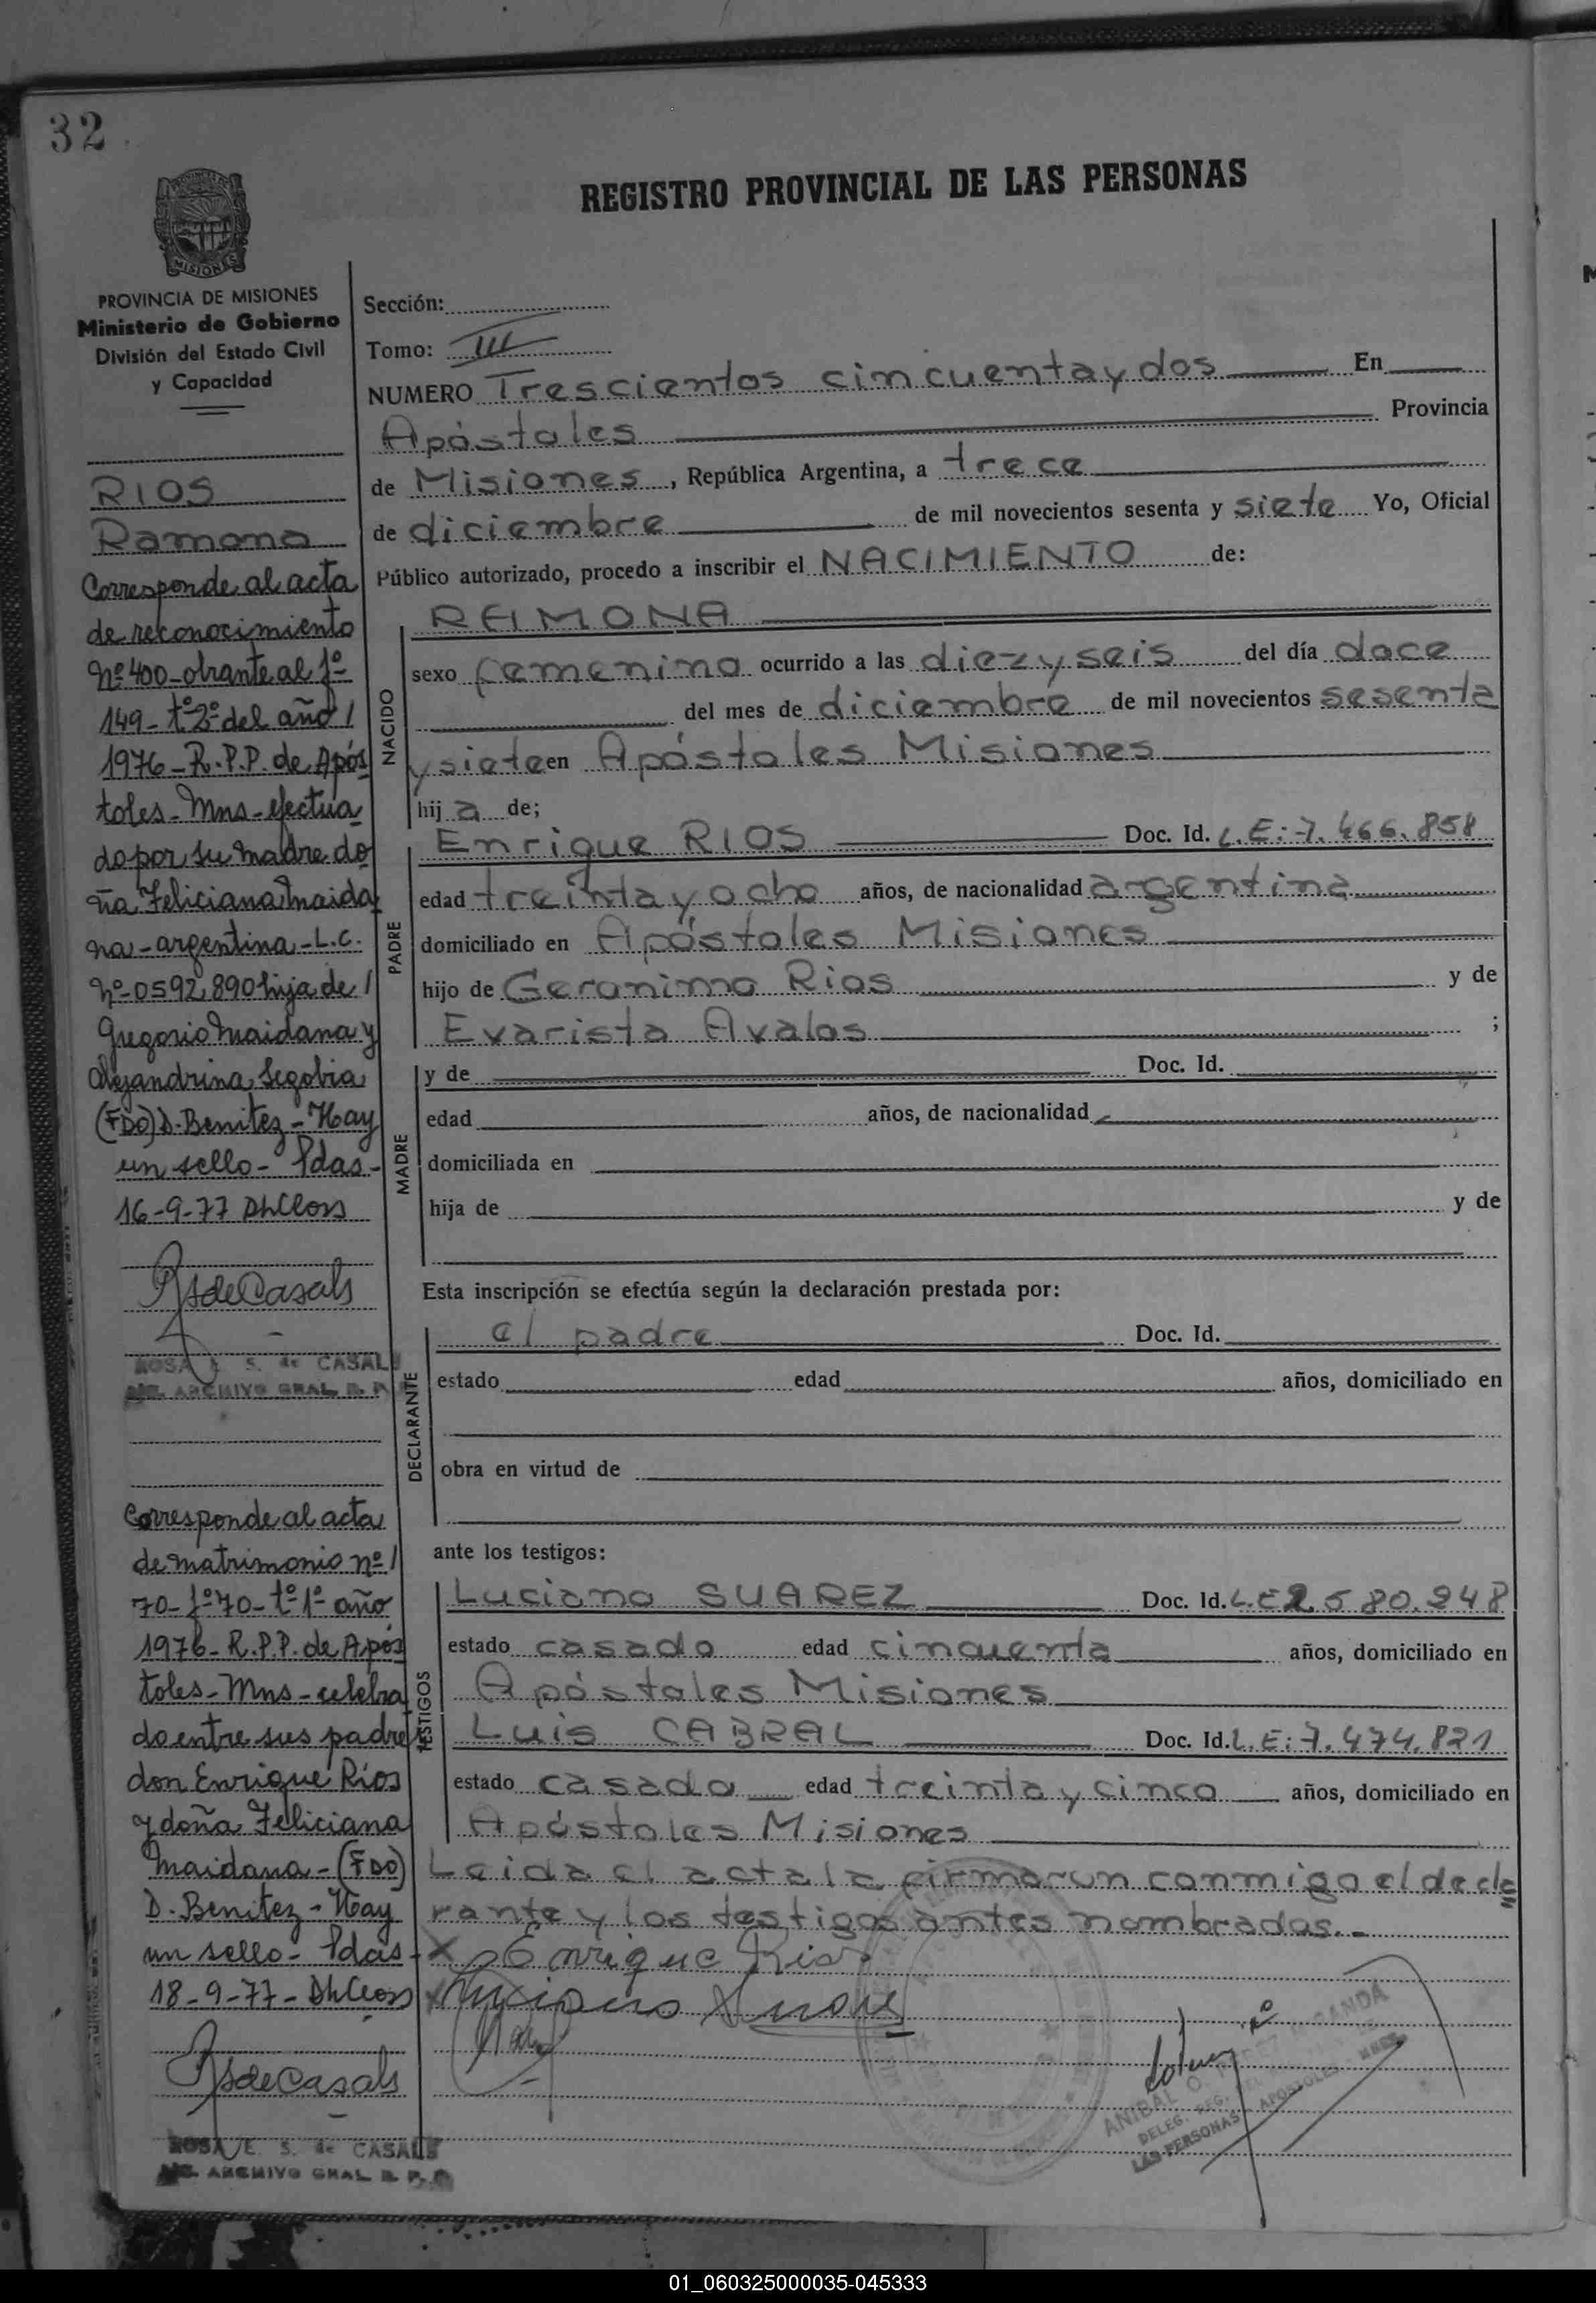 32
REGISTRO PROVINCIAL DE LAS PERSONAS
MISIONES
PROVINCIA DE MISIONES
Ministerio de Gobierno
División del Estado Civil
y Capacidad
RIOS
Ramona
Corresponde al acta
de reconocimiento
Nº 400 - obrante al fº
149 - tº 2º del año /
1976 - R.P.P. de Após
toles - Mns - efectua
do por su madre do
ña Feliciana Maida
na - argentina - L.C.
Nº 0592.890 hija de /
Gregorio Maidana y
Alejandrina Segobia
(FDO) D. Benitez - Hay
un sello - Pdas -
16-9-77
ROSA E. S. de CASALS
ARCHIVO GRAL. R. P.
Corresponde al acta
de matrimonio nº /
70 - fº 70 - tº 1º año
1976 - R.P.P. de Após
toles - Mns - celebra
do entre sus padres
don Enrique Ríos
y doña Feliciana
Maidana - (FDO)
D. Benitez - Hay
un sello - Pdas -
18-9-77
ROSA E. S. de CASALS
ARCHIVO GRAL. R. P.
Sección:
Tomo: III
NUMERO Trescientos cincuenta y dos En
Apóstoles Provincia
de Misiones, República Argentina, a trece
de diciembre de mil novecientos sesenta y siete Yo, Oficial
Público autorizado, procedo a inscribir el NACIMIENTO de:
NACIDO
RAMONA
sexo femenino ocurrido a las diez y seis del día doce
del mes de diciembre de mil novecientos sesenta
y siete en Apóstoles Misiones
hij a de;
PADRE
Enrique RIOS Doc. Id. L.E: 7.466.858
edad treinta y ocho años, de nacionalidad argentina
domiciliado en Apóstoles Misiones
hijo de Geronimo Rios y de
Evarista Avalos ;
MADRE
y de Doc. Id.
edad años, de nacionalidad
domiciliada en
hija de y de
Esta inscripción se efectúa según la declaración prestada por:
DECLARANTE
el padre Doc. Id.
estado edad años, domiciliado en
obra en virtud de
ante los testigos:
TESTIGOS
Luciano SUAREZ Doc. Id. L.E 2.580.248
estado casado edad cincuenta años, domiciliado en
Apóstoles Misiones
Luis CABRAL Doc. Id. L.E: 7.474.821
estado casado edad treinta y cinco años, domiciliado en
Apóstoles Misiones
Leida el acta la firmaron conmigo el decla
rante y los testigos antes nombrados.-
x Enrique Rios
x Luciano Suarez
ANIBAL O. MIRANDA
DELEG. REG.
LAS PERSONAS - APOSTOLES - MNES
01_060325000035-045333